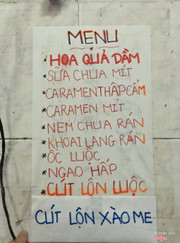 MENU
* HOA QUẢ DẦM
* SỮA CHUA MÍT
* CARAMENTHẬPCẨM
* CARAMEN MÍT
* NEM CHUA RÁN
* KHOAI LANG RÁN
* ỐC LUỘC
* NGAO HẤP
* CÚT LỘN LUỘC
CÚT LỘN XÀO ME